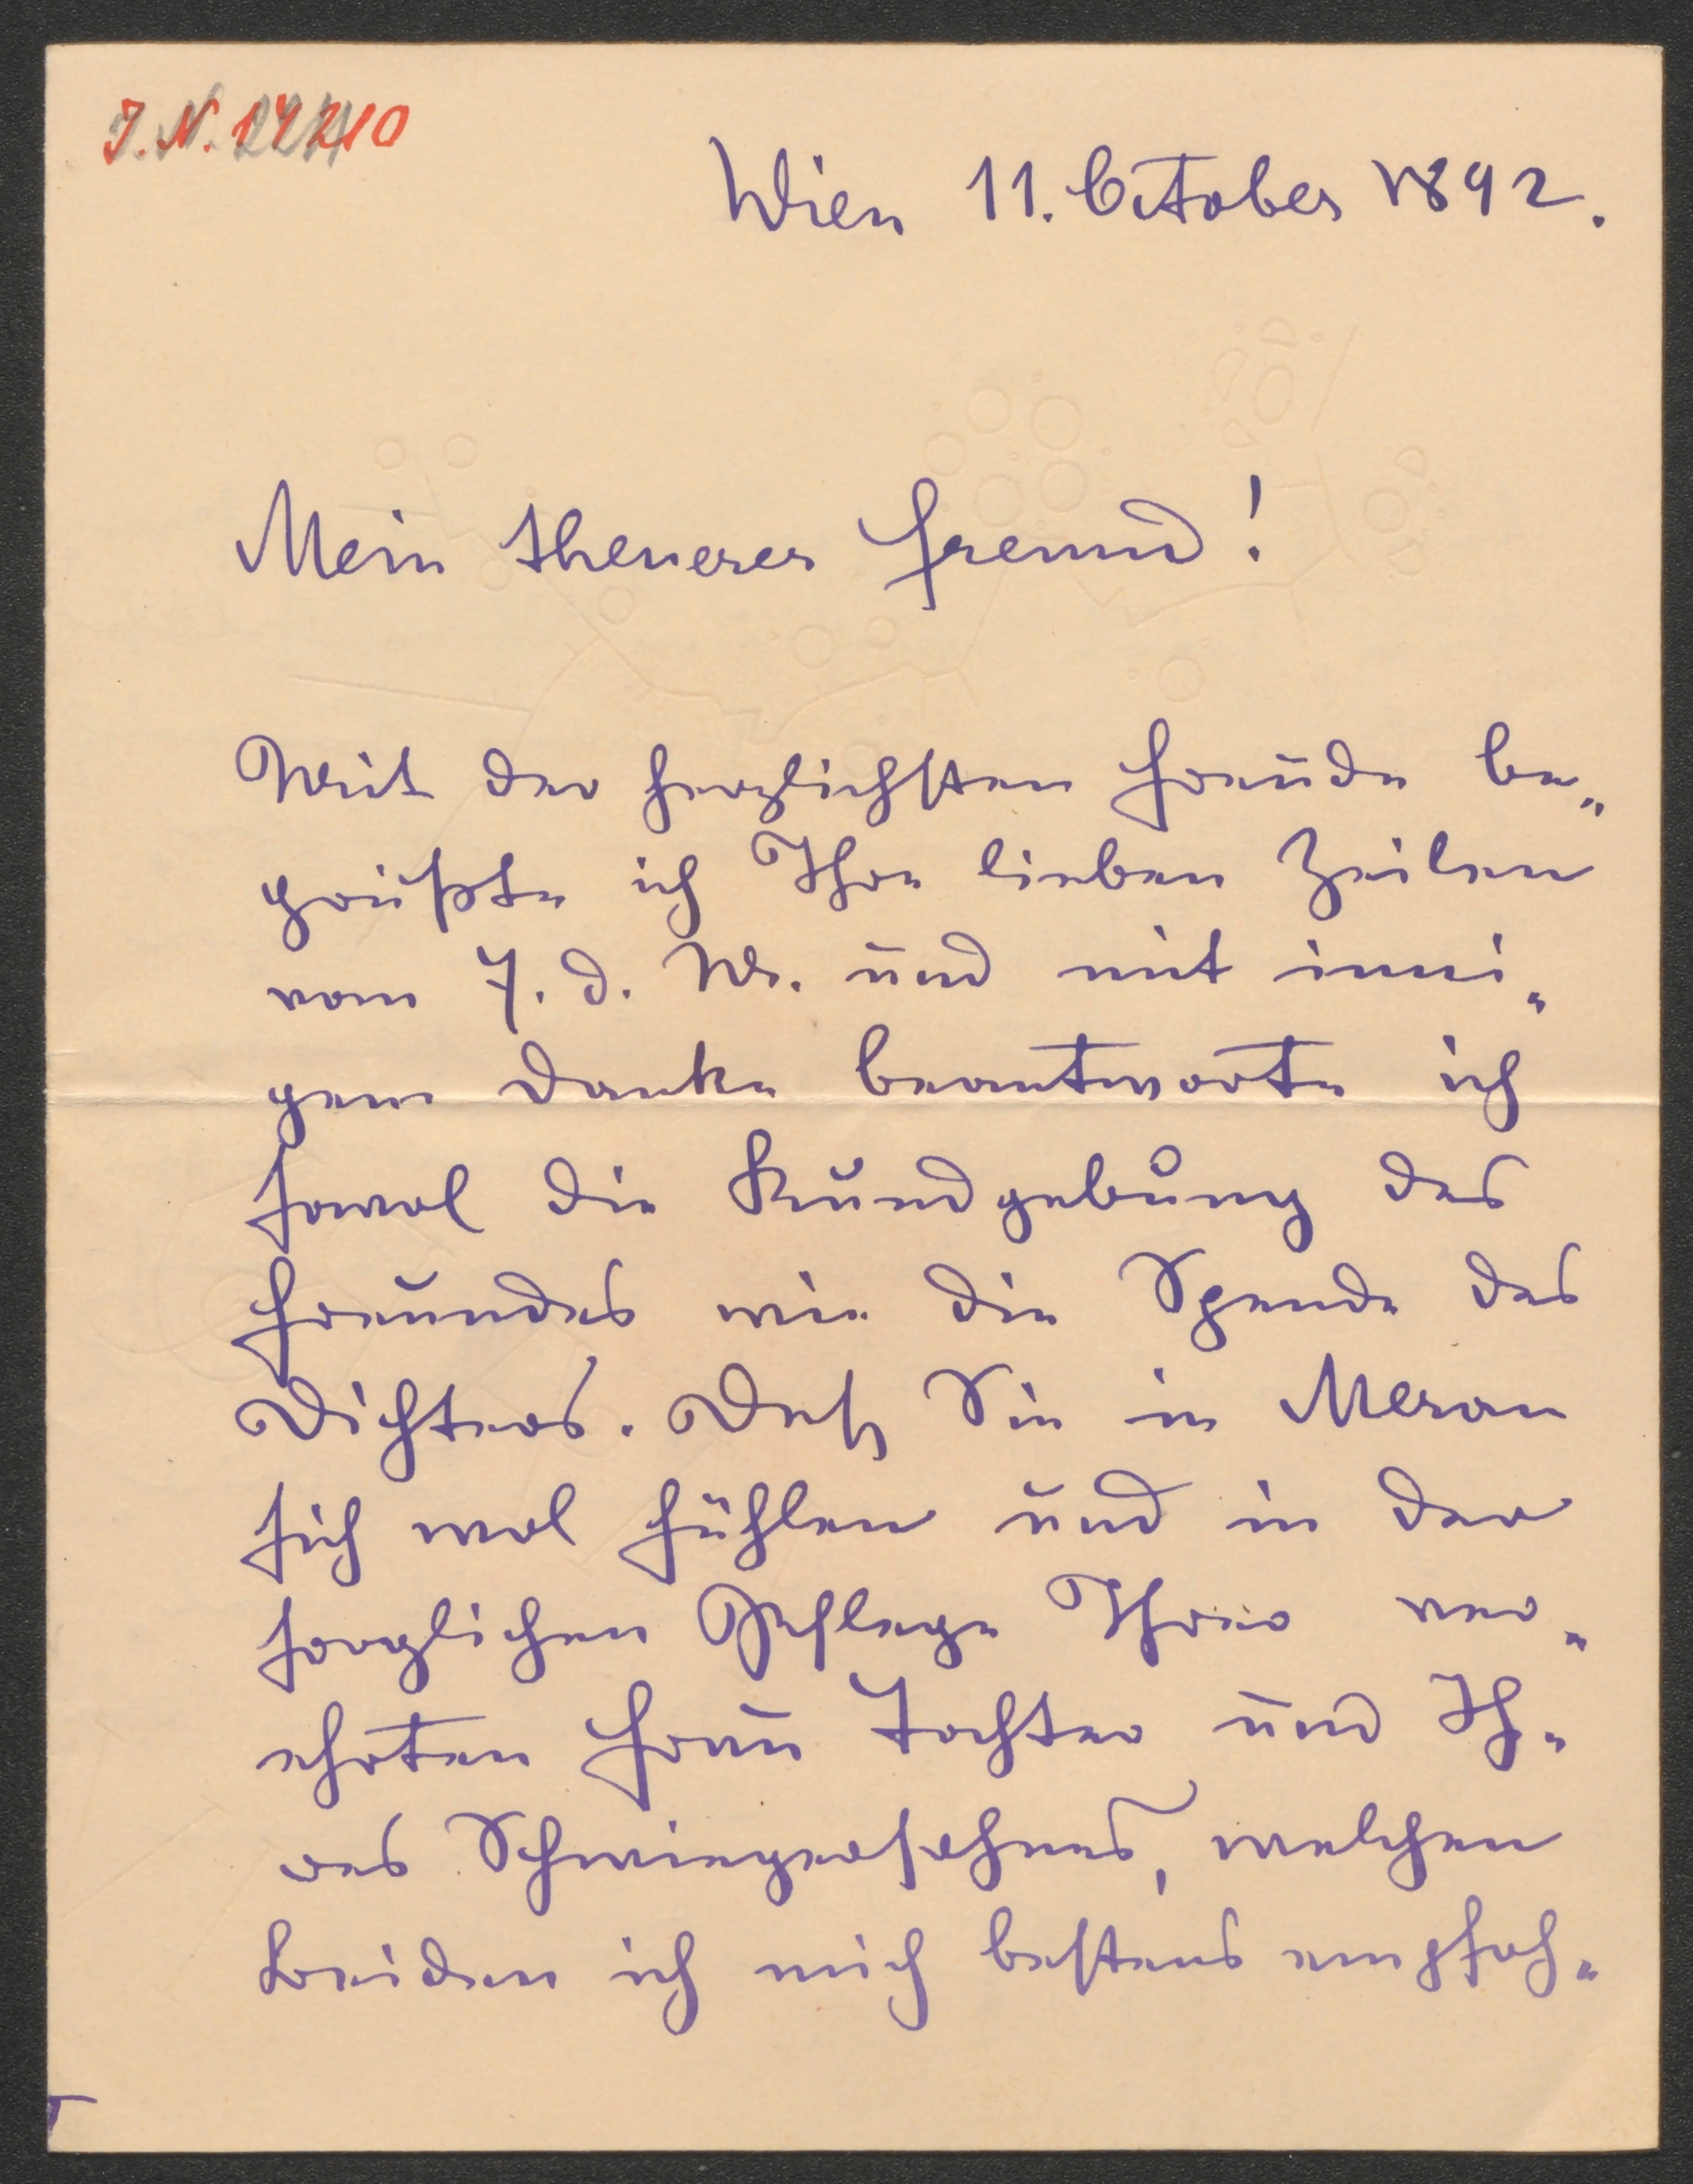 Wien 11. October 1892.
Mein theuerer Freund!
Mit der herzlichsten Freude be„
grüßte ich Ihre lieben Zeilen
vom 7. d. Ms. und mit inni„
gem Danke beantworte ich
sowol die Kundgebung des
Freundes wie die Spende des
Dichters. Daß Sie in Meran
sich wol fühlen und in der
sorglichen Pflege Ihrer ver„
ehrten Frau Tochter und Ih„
res Schwiegersohnes, welchen
Beiden ich mich bestens empfoh„